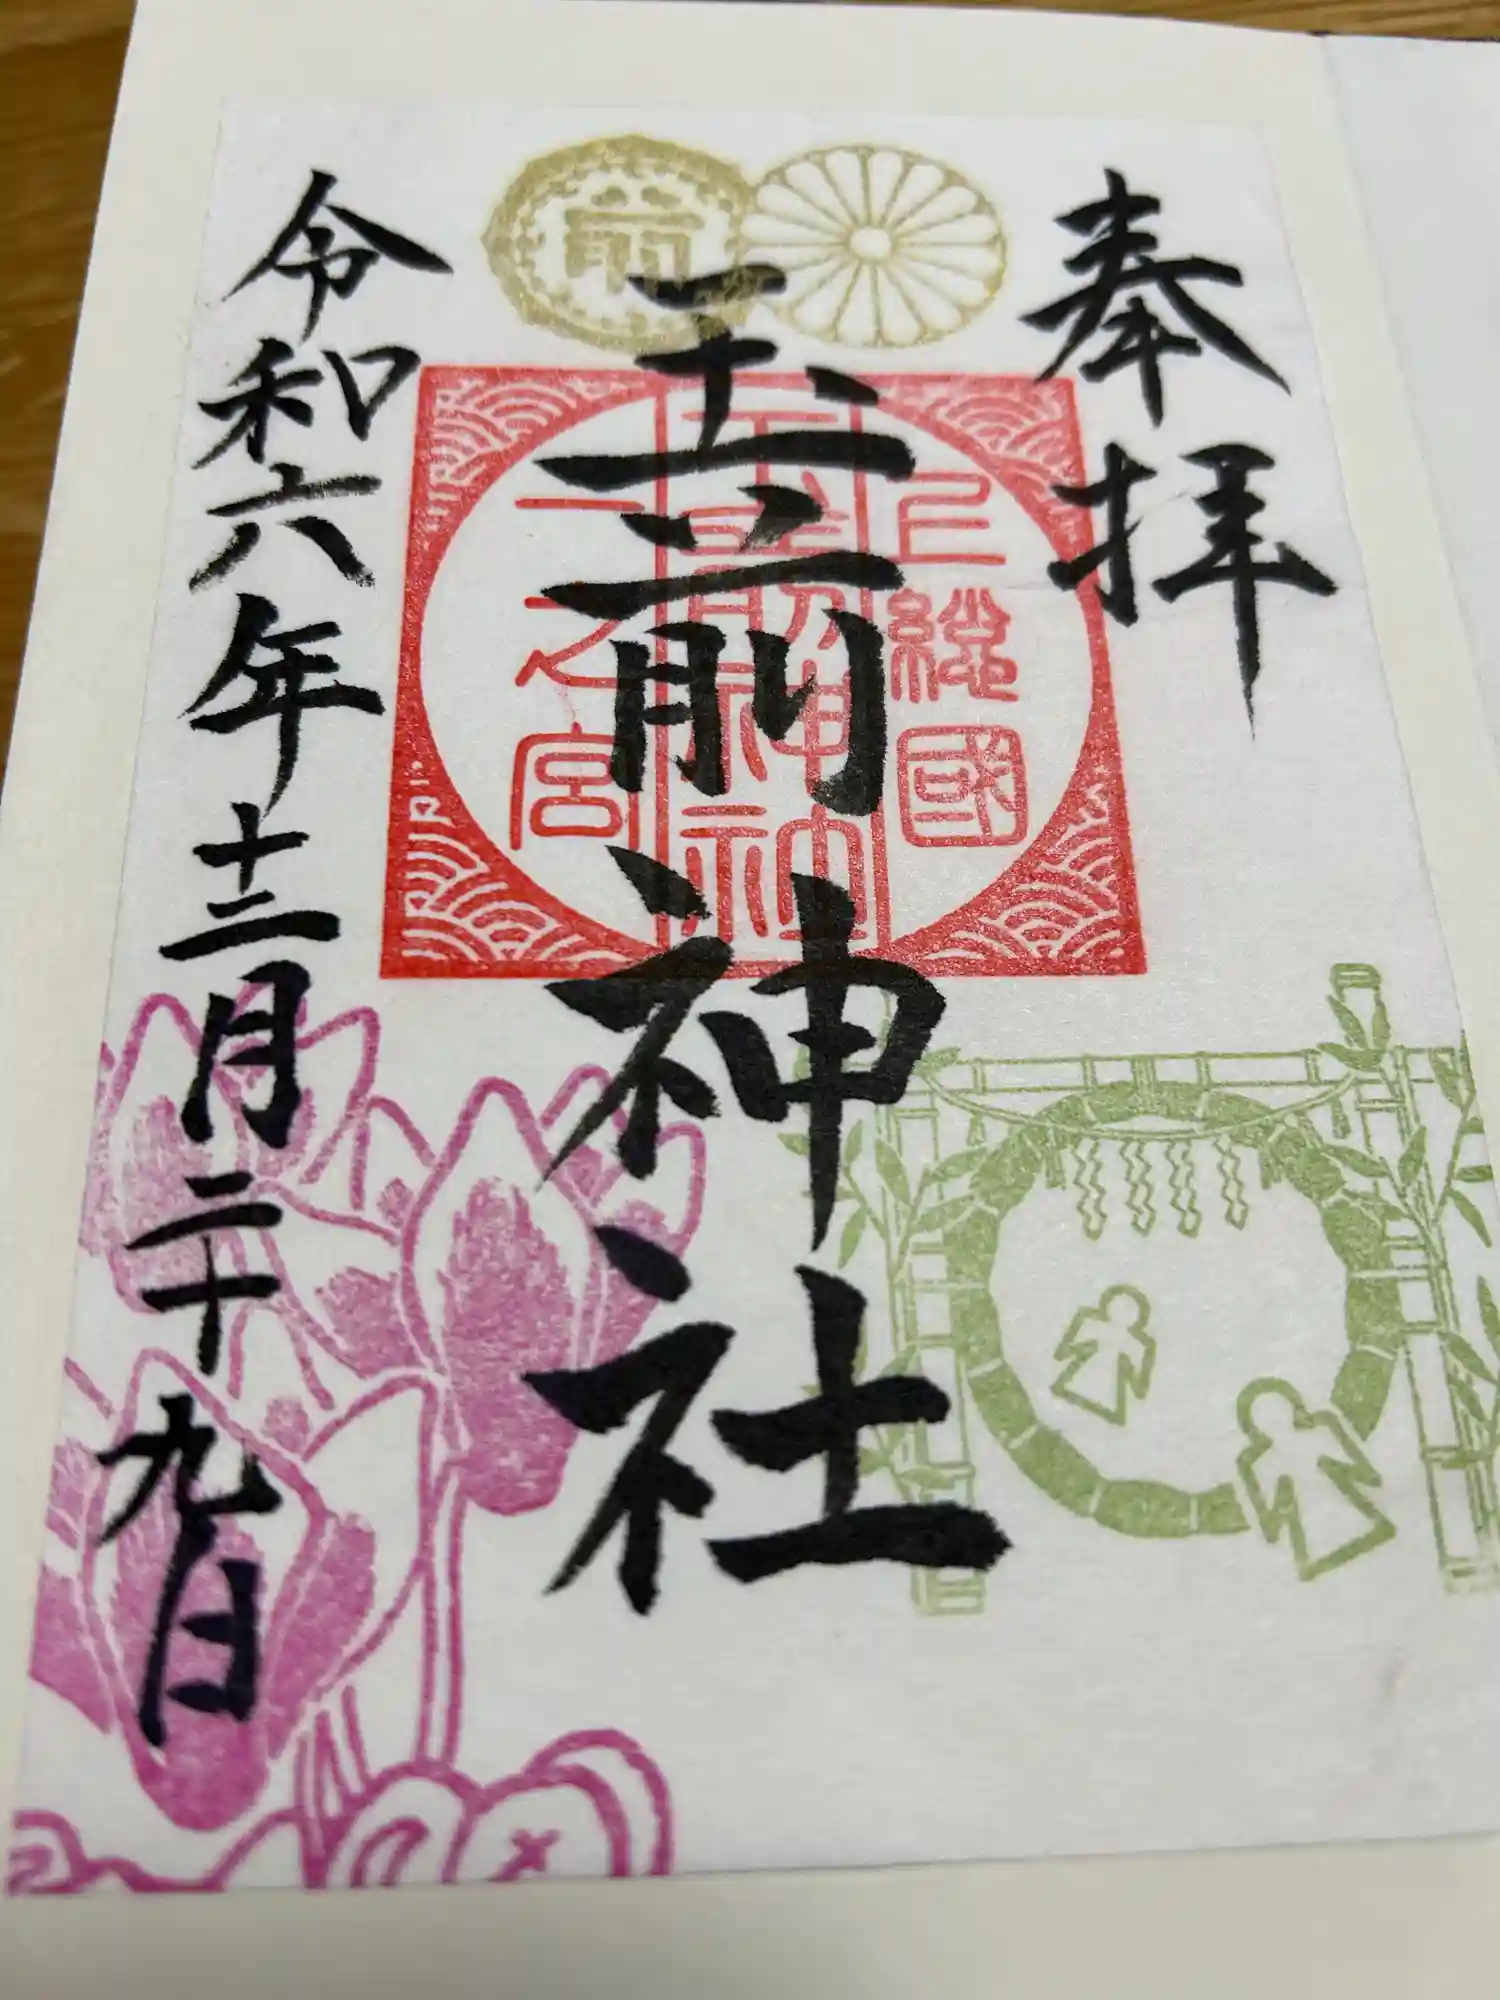 奉拝
上総國
玉前神社
一之宮
玉前神社
令和六年十二月二十九日